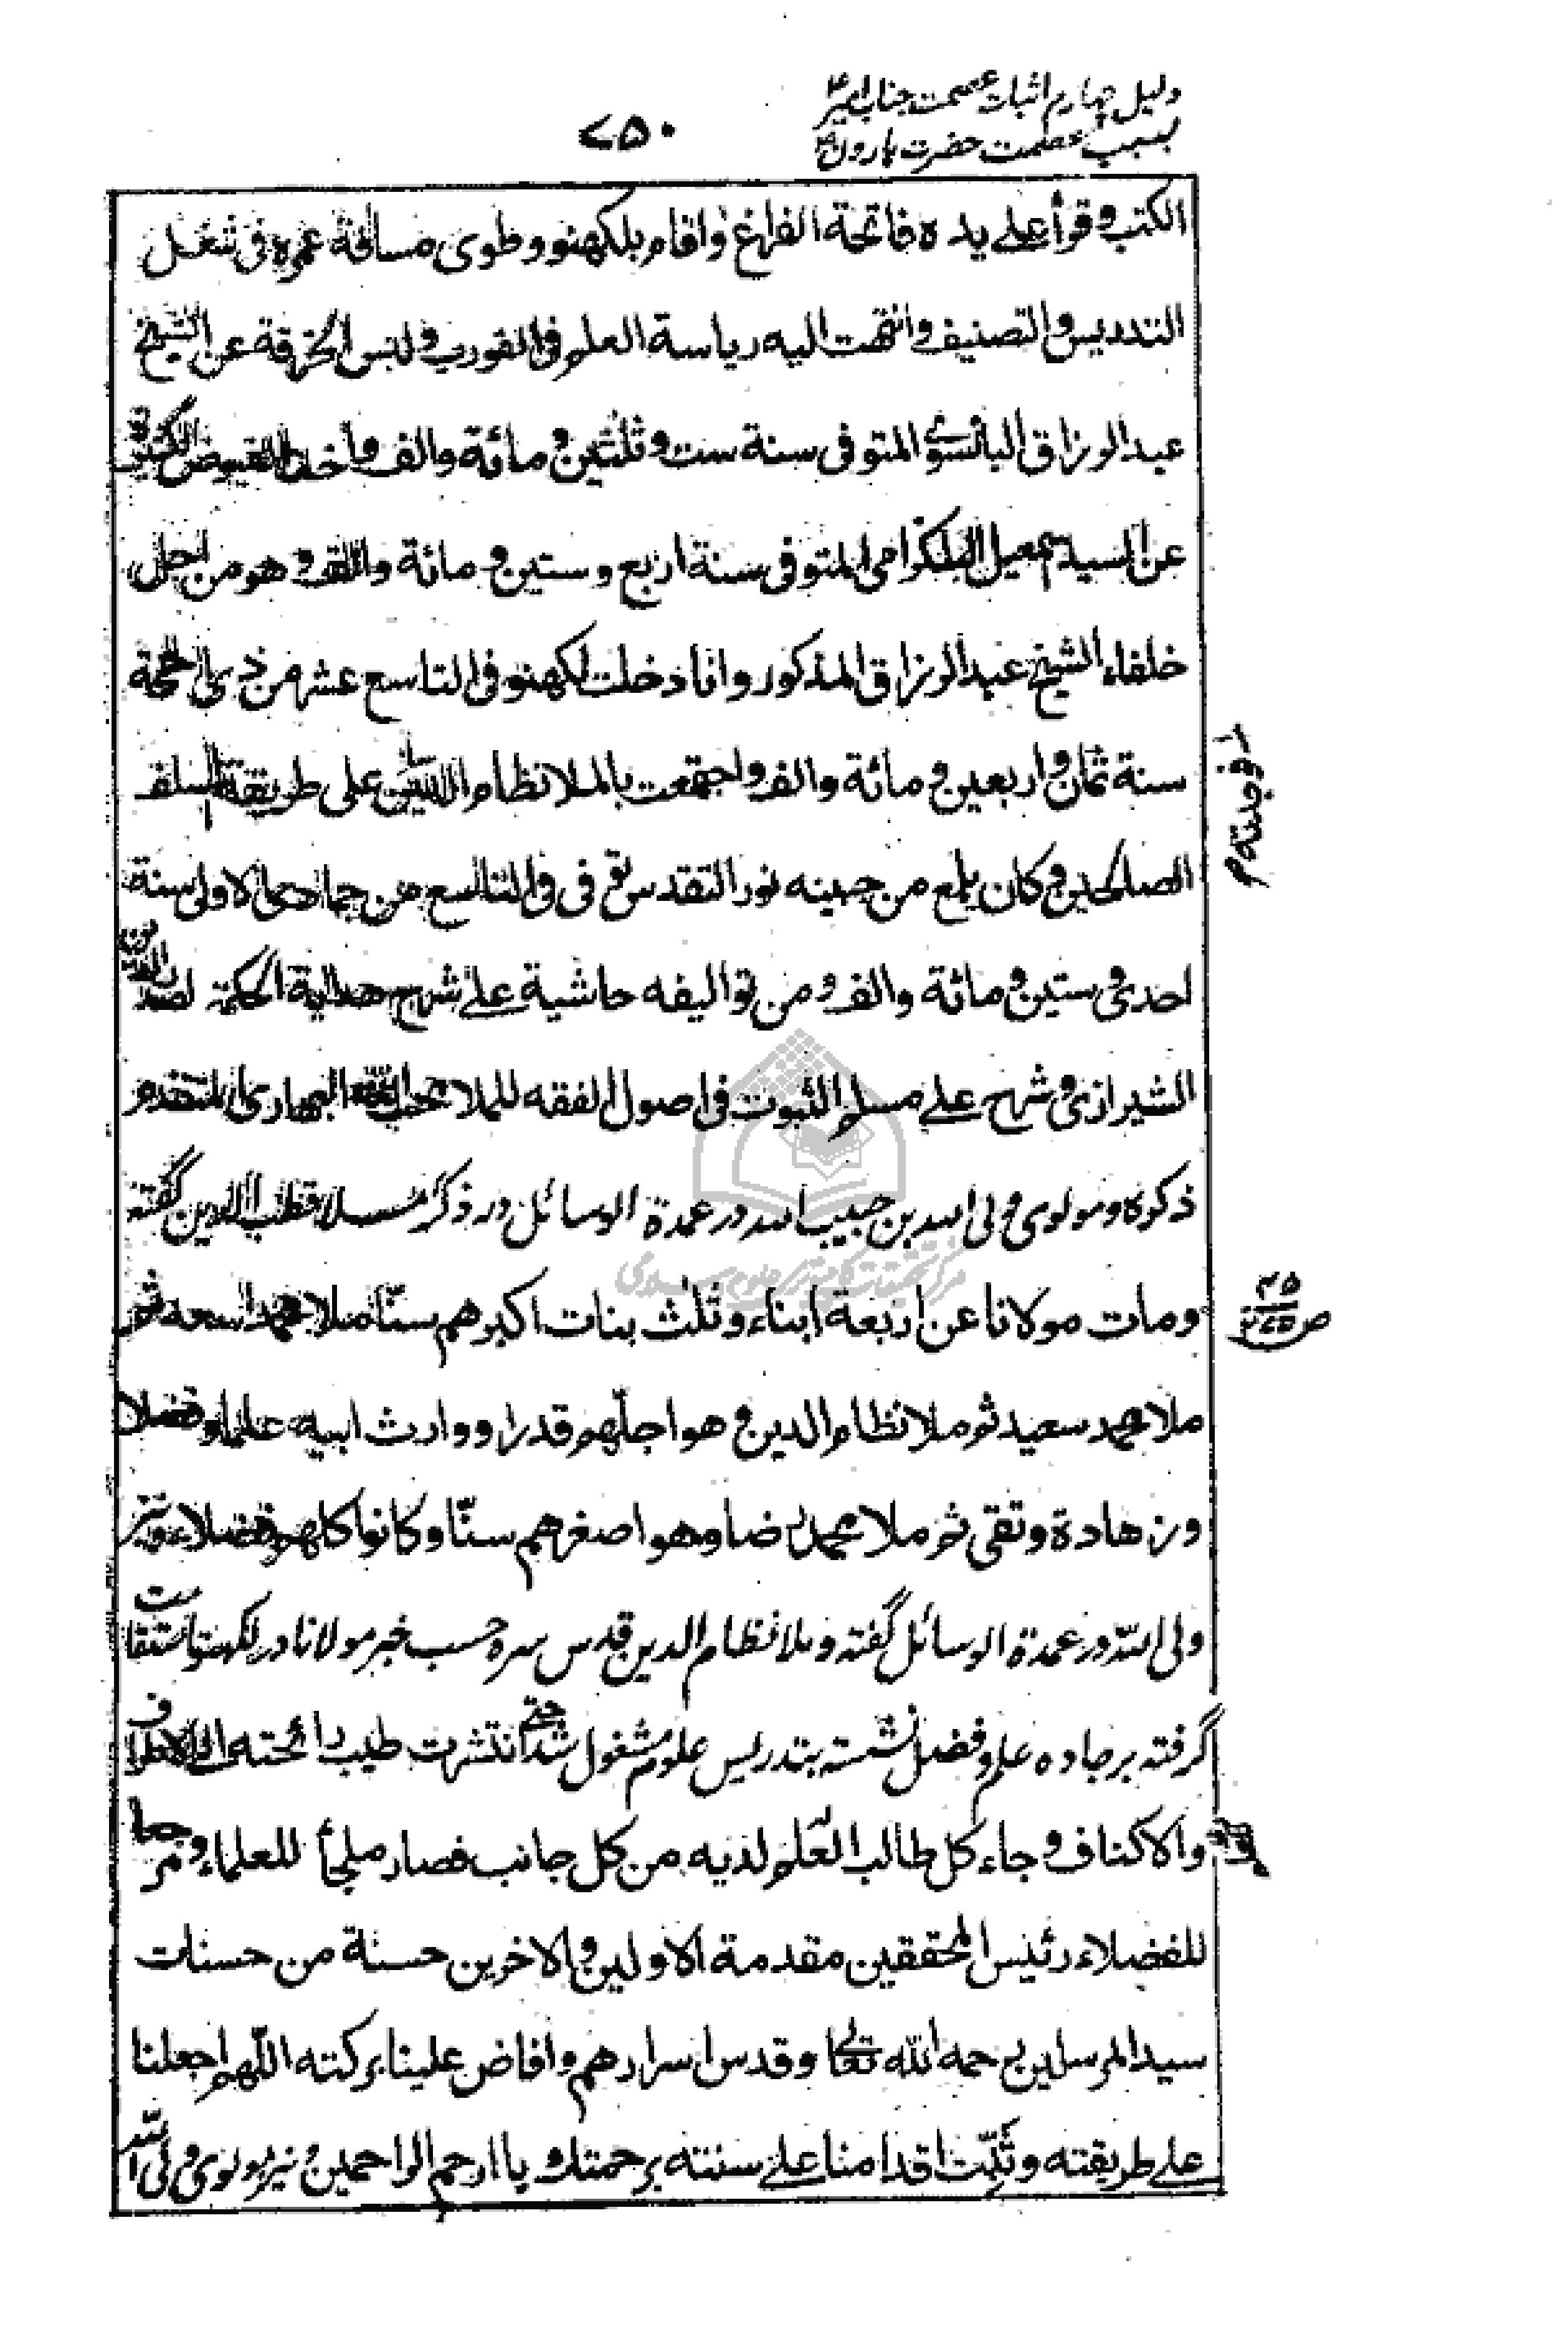 دلیل چهارم اثبات عصمت جناب امیرؑ
بسبب عصمت حضرت هارونؑ
۷۵۰
الکتب وقرأ علی یده فاتحة الفراغ واقام بلکهنو وطوی مسافة عمره فی شغل
التدریس والتصنیف وانتهت الیه ریاسة العلم فی الفورب ولبس الخرقة عن الشیخ
عبد الرزاق البانسوی المتوفی سنة ست وثلثین ومائة والف واخذ الفیوض الکثیرة
عن السید اسمعیل البلگرامی المتوفی سنة اربع وستین ومائة والف وهو من اجل
خلفاء الشیخ عبد الرزاق المذکور وانا دخلت لکهنو فی التاسع عشر من ذی الحجة
سنة ثمان واربعین ومائة والف واجتمعت بالملا نظام الدین علی طریقة السلف
فوجدته
الصالحین وکان یلمع من جبینه نور التقدس توفی فی التاسع من جمادی الاولی سنة
احدی وستین ومائة والف ومن توالیفه حاشیة علی شرح هدایة الحکمة لصدر الدین
الشیرازی وشرح علی مسلم الثبوت فی اصول الفقه للملا محب الله البهاری المتقدم
ذکره ومولوی ولی الله بن حبیب الله در عمدة الوسائل در ذکر ملا قطب الدین گفته
ومات مولانا عن اربعة ابناء وثلث بنات اکبرهم سنّا ملا محمد اسعد ثم
ملا محمد سعید ثم ملا نظام الدین وهو اجلّهم قدرا ووارث ابیه علما وفضلا
وزهادة وتقی ثم ملا محمد رضا وهو اصغرهم سنّا وکانوا کلهم فضلاء ونیز
ولی الله در عمدة الوسائل گفته وملا نظام الدین قدس سره حسب خبر مولانا در لکهنو استقامت
گرفته بر جاده علم وفضل نشسته بتدریس علوم مشغول شد حتی انتشرت طیب رائحته الی الاطراف
والاکناف وجاء کل طالب العلم لدیه من کل جانب فصار ملجأ للعلماء ومرجعا
للفضلاء رئیس المحققین مقدمة الاولین والاخرین حسنة من حسنات
سید المرسلین رحمه الله تعالی وقدس اسرارهم وافاض علینا برکته اللّهم اجعلنا
علی طریقته وثبّت اقدامنا علی سنته برحمتک یا ارحم الراحمین ونیز مولوی ولی الله